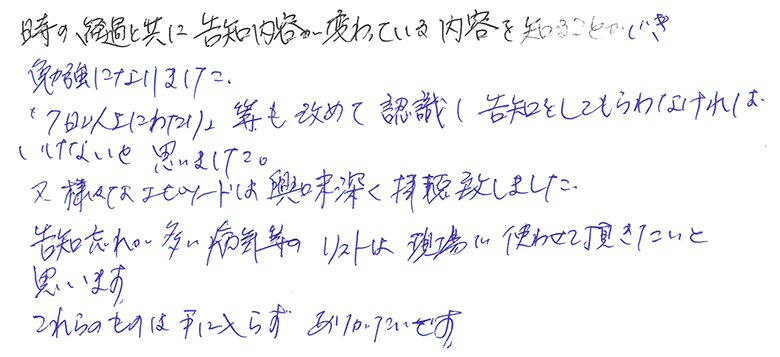 日時の経過と共に告知内容が変わっている内容を知ることができ
勉強になりました。
"7日以上にわたり"等も改めて認識し告知をしてもらわなければ
いけないと思いました。
又様々なエピソードは興味深く拝聴致しました。
告知忘れが多い病気等のリストは現場で使わせて頂きたいと
思います
これらのものは手に入らずありがたいです